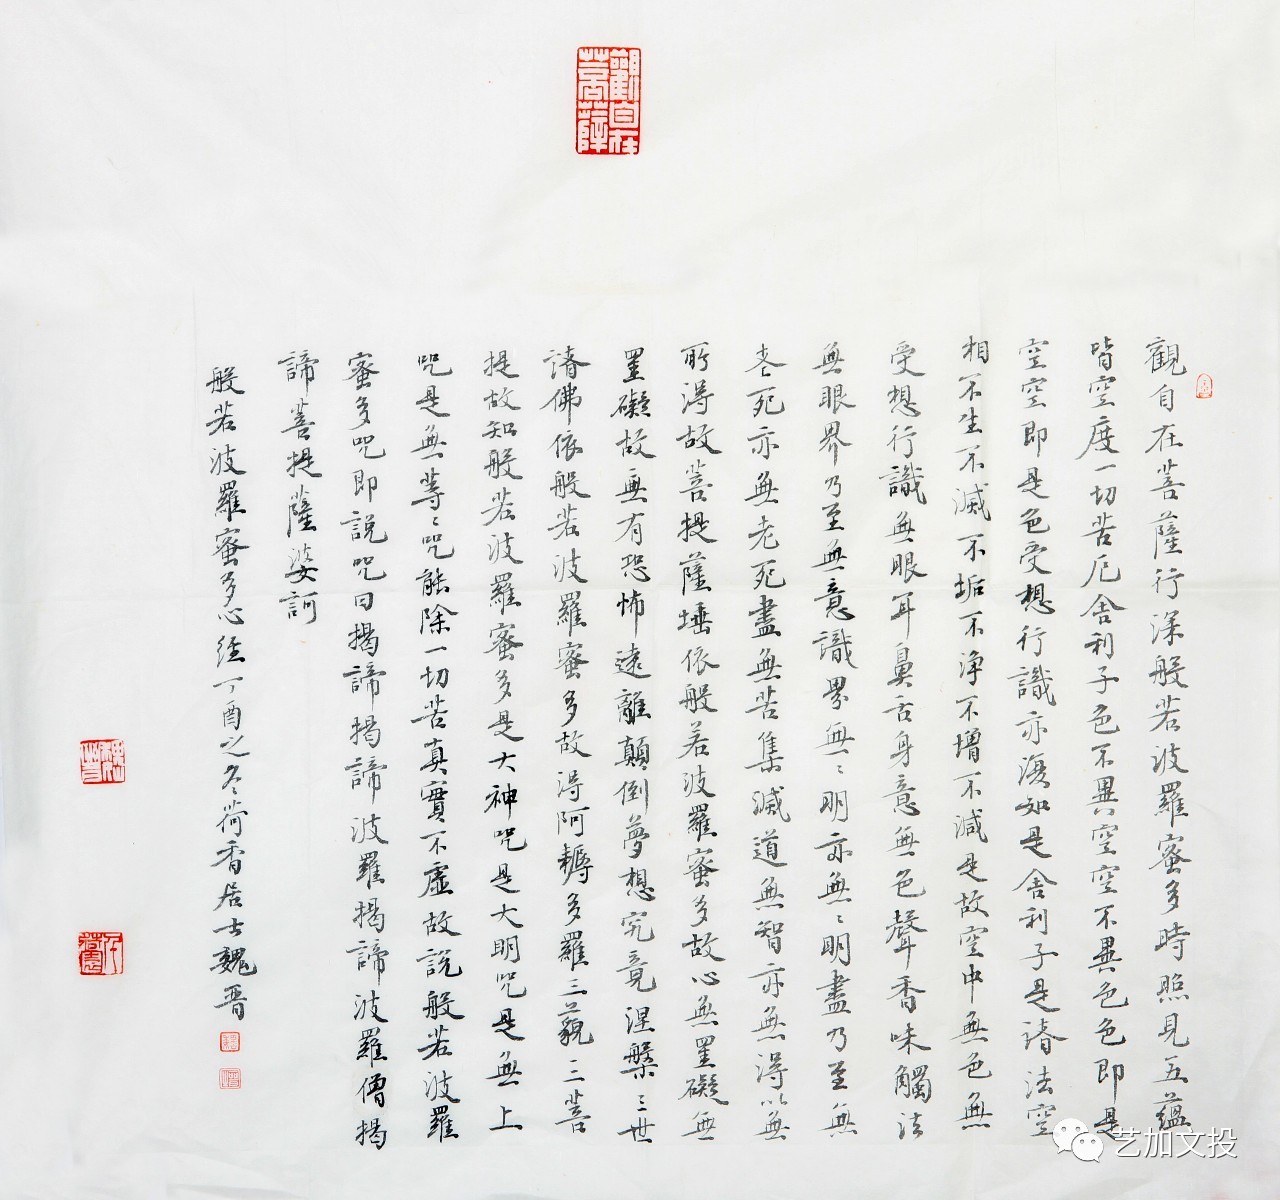 觀自在菩薩
觀自在菩薩行深般若波羅蜜多時照見五蘊
皆空度一切苦厄舍利子色不異空空不異色色即是
空空即是色受想行識亦復如是舍利子是諸法空
相不生不滅不垢不淨不增不減是故空中無色無
受想行識無眼耳鼻舌身意無色聲香味觸法
無眼界乃至無意識界無〻明亦無〻明盡乃至無
老死亦無老死盡無苦集滅道無智亦無得以無
所得故菩提薩埵依般若波羅蜜多故心無罣礙無
罣礙故無有恐怖遠離顛倒夢想究竟涅槃三世
諸佛依般若波羅蜜多故得阿耨多羅三藐三菩
提故知般若波羅蜜多是大神咒是大明咒是無上
咒是無等〻咒能除一切苦真實不虛故說般若波羅
蜜多咒即說咒曰揭諦揭諦波羅揭諦波羅僧揭
諦菩提薩婆訶
般若波羅蜜多心經丁酉之冬荷香居士魏晉
魏晉
艺加文投